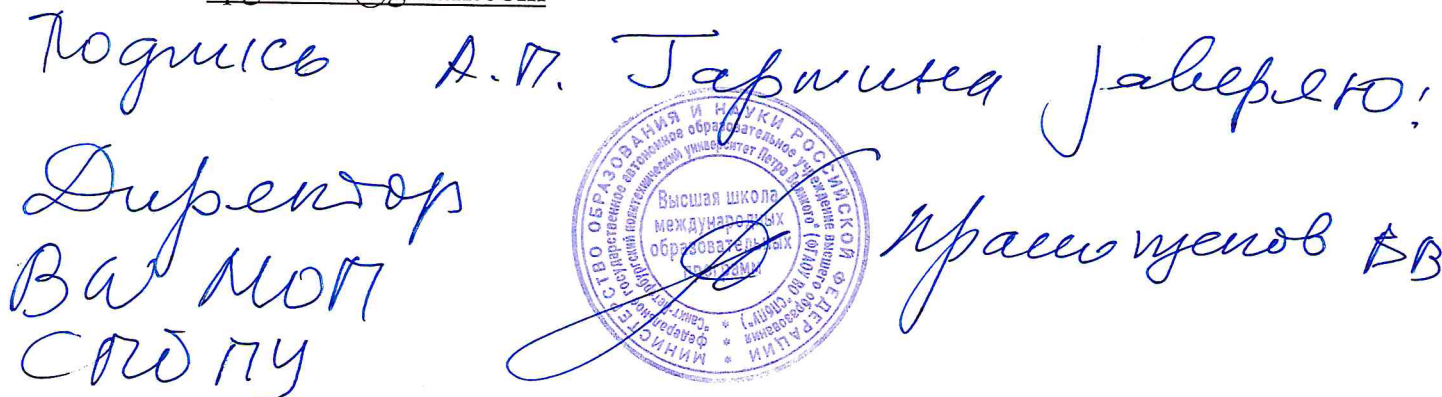 Подпись А.П. Гармина заверяю!
Директор
ВШ МОП
СПбПУ
МИНИСТЕРСТВО ОБРАЗОВАНИЯ И НАУКИ РОССИЙСКОЙ ФЕДЕРАЦИИ *
федеральное государственное автономное образовательное учреждение высшего образования
"Санкт-Петербургский политехнический университет Петра Великого" (ФГАОУ ВО "СПбПУ") *
Высшая школа
международных
образовательных
программ
ВВ